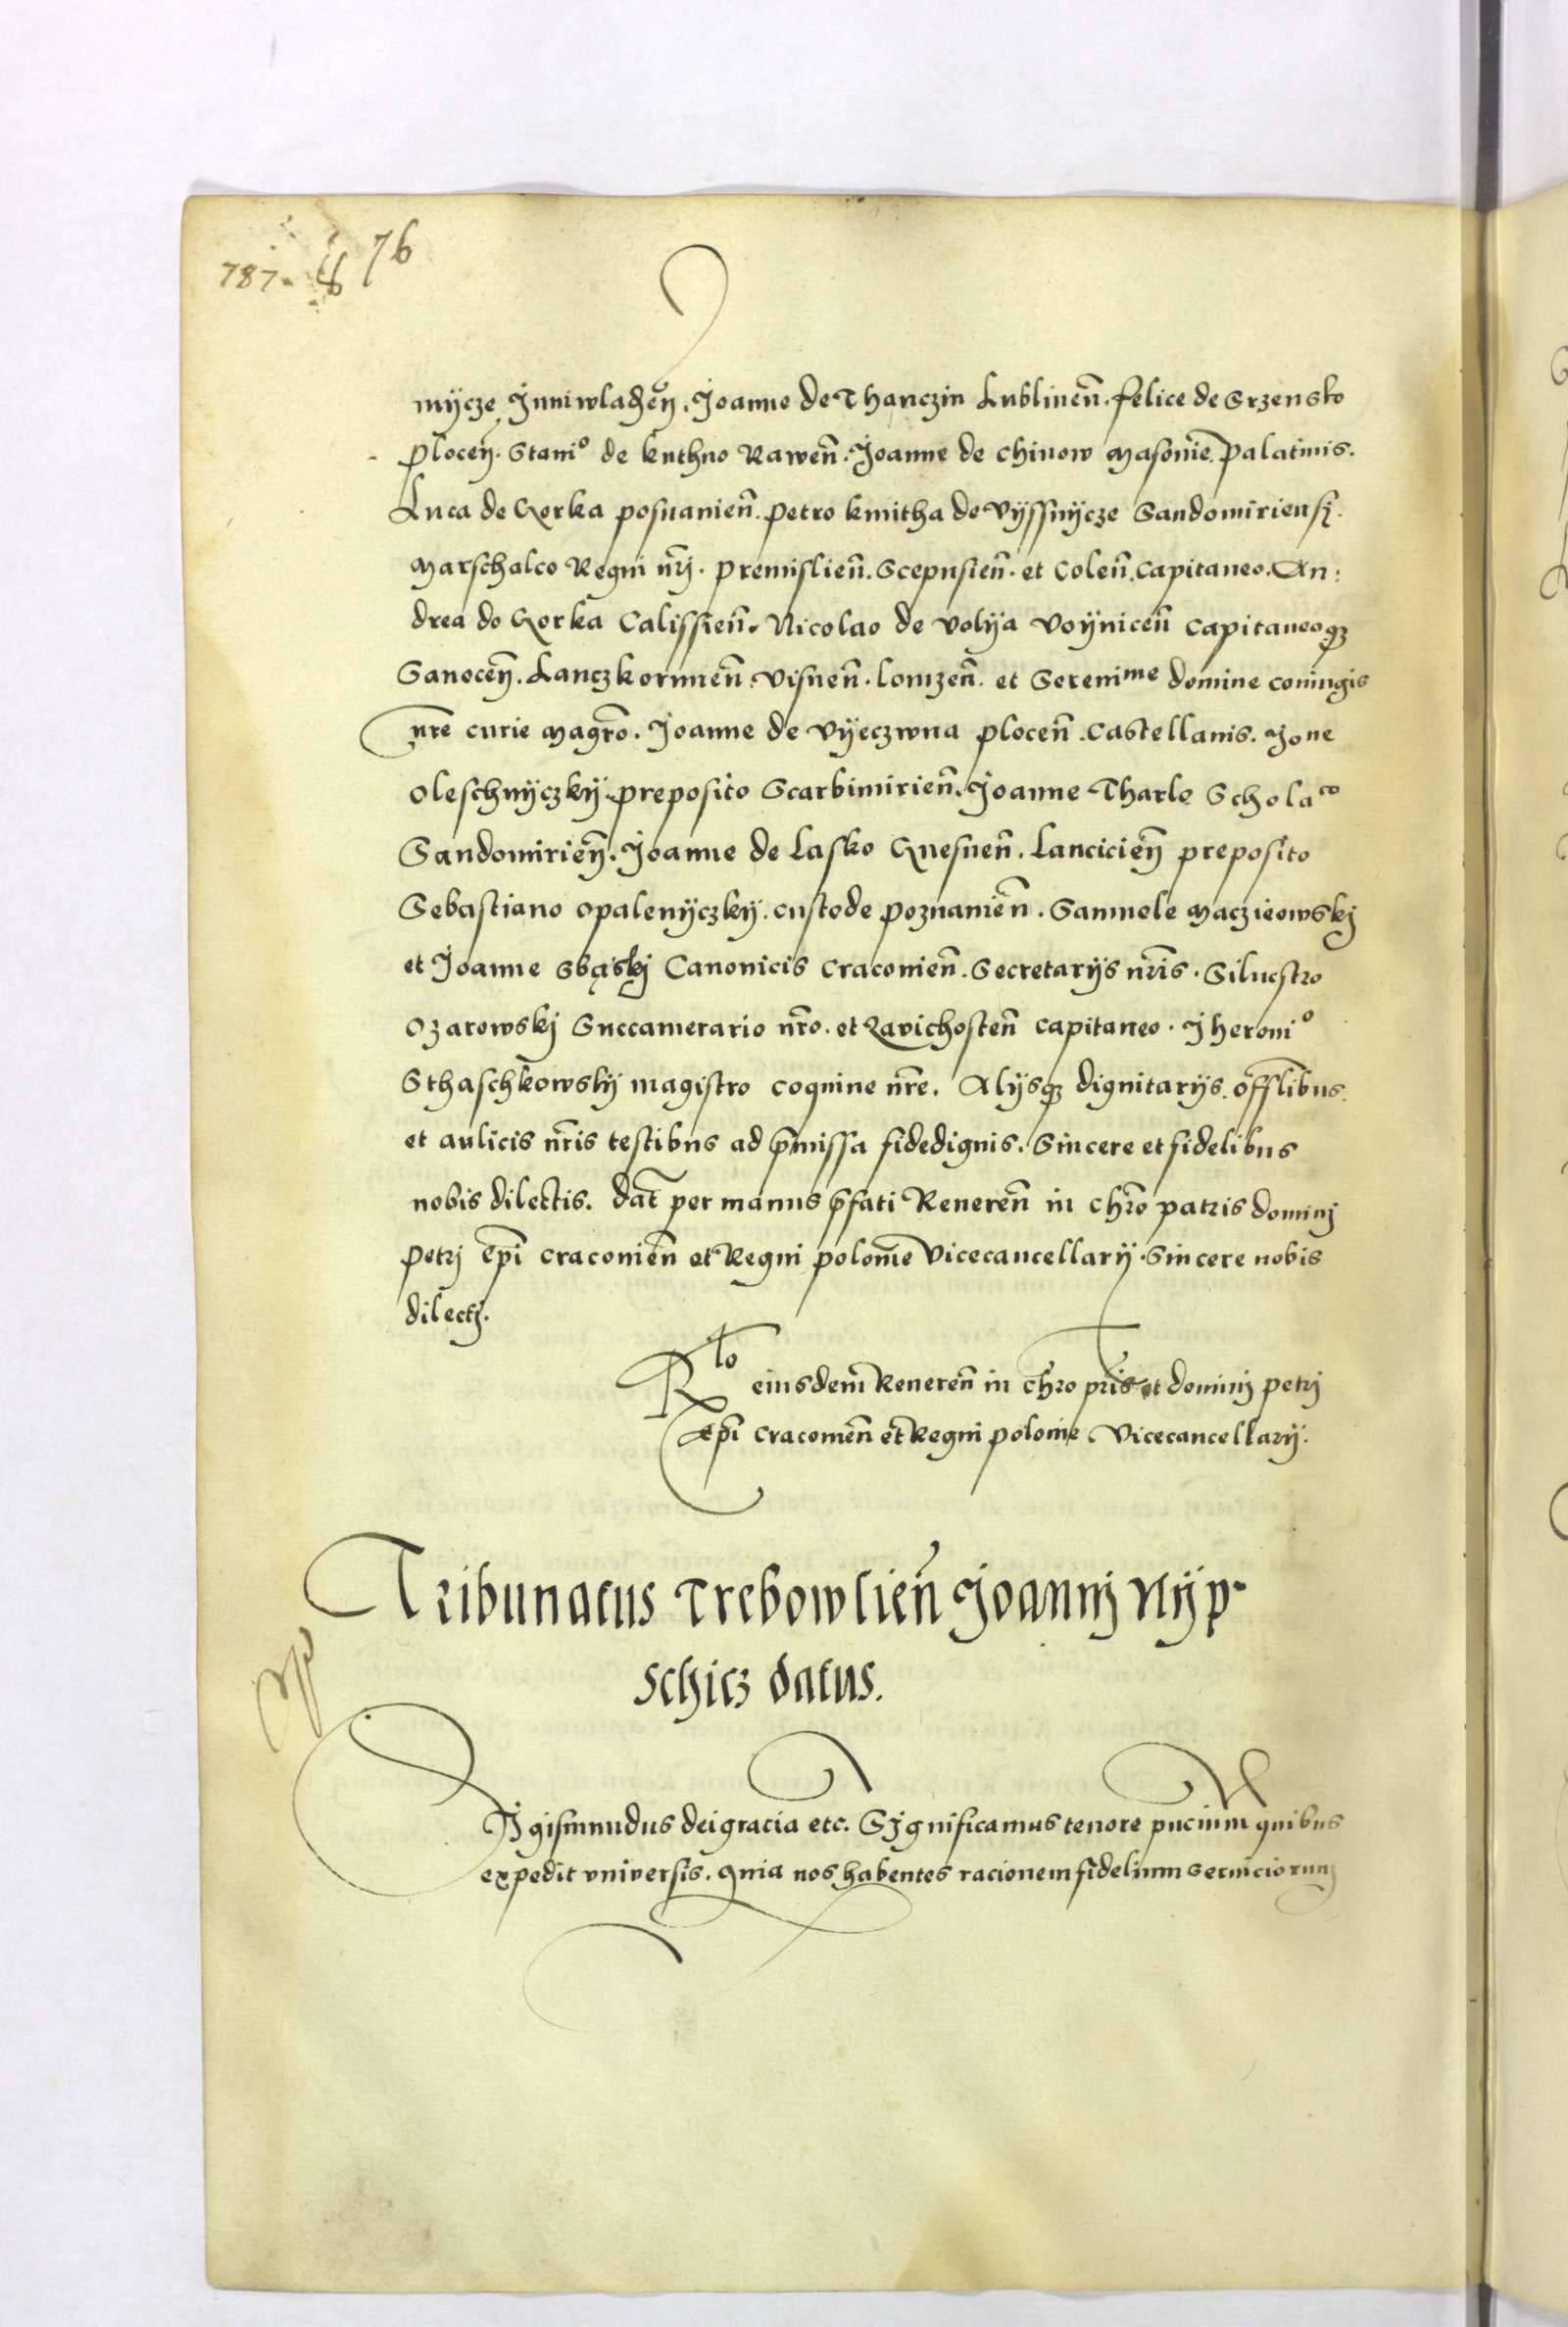 787. 76
mÿcze Juniwladẽn. Joanne de Thanczin Lublineñ. felice de Srzensko
ploceñ. Staniº de kuthno Raweñ. Joanne de chinow Masovie palatinis.
Luca de Gorka posnanieñ. petro kmitha de Vÿssnÿcze Sandomiriensi.
Marschalco Regni nr̃j. premislieñ. Scepusieñ. et Coleñ. Capitaneo. An:
drea de Gorka Calissieñ. Nicolao de Volÿa Voÿniceñ Capitaneoqȝ
Sanoceñ. Lanczkorunieñ. Visneñ. lomzeñ. et Serenime domine coniugis
nr̃e curie Magr̃o. Joanne de Vÿeczwna ploceñ. Castellanis. Jone
Oleschnÿczkÿ preposito Scarbimirieñ. Joanne Tharlo Scholaco
Sandomirieñ. Joanne de Lasko Gnesneñ. Lancicieñ preposito
Sebastiano Opalenÿczkÿ. custode poznanieñ. Samuele Maczieowskj
et Joanne Sbąskj Canonicis Cracovieñ. Secretarÿs nr̃is. Siluestro
Ozarowskj Succamerario nr̃o. et Zavichosteñ capitaneo. Jheroniº
Sthaschkowskÿ magistro coquine nr̃e. Alÿsqȝ dignitarÿs. offl̃ibus
et aulicis nr̃is testibus ad p̃missa fidedignis. Sincere et fidelibus
nobis dilectis. dat̃ per manus p̃fati Reuereñ in chr̃o patris dominj
petrj ep̃i cracovieñ et Regni polonie Vicecancellarÿ. Sincere nobis
dilectj.
Rlo eiusdem Reuereñ in chr̃o pr̃is et dominj petrj
ep̃i Cracovieñ et Regni polonie Vicecancellarÿ.
Tribunatus Trebowlieñ Joannj Nÿp
schicz datus.
Sigismundus dei gracia etc. Significamus tenore pñcium quibus
expedit vniversis. quia nos habentes racionem fidelium seruiciorum